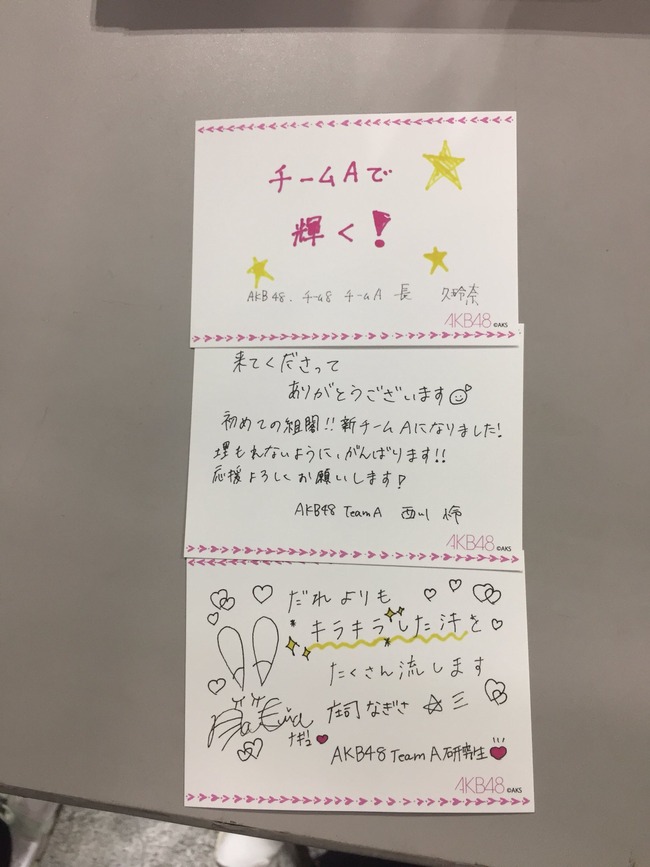 チームAで
輝く!
AKB48. チーム8 チームA 長 久玲奈
AKB48 ©AKS
来てくださって
ありがとうございます
初めての組閣!!新チームAになりました!
埋もれないように、がんばります!!
応援よろしくお願いします!
AKB48 TeamA 西川 怜
AKB48 ©AKS
だれよりも
キラキラした汗を
たくさん流します
庄司なぎさ ☆三
ナギュ
AKB48 TeamA研究生
AKB48 ©AKS